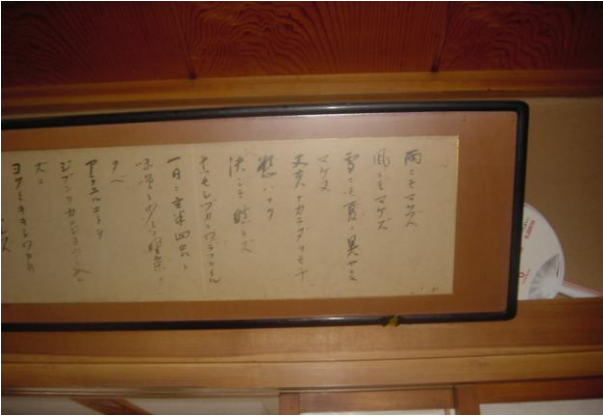 雨ニモマケズ
風ニモマケズ
雪ニモ夏ノ暑サニモ
マケヌ
丈夫ナカラダヲモチ
慾ハナク
決シテ瞋ラズ
イツモシヅカニワラッテヰル
一日ニ玄米四合ト
味噌ト少シノ野菜ヲ
タベ
アラユルコトヲ
ジブンヲカンジョウニ入レ
ズニ
ヨクミキキシワカリ